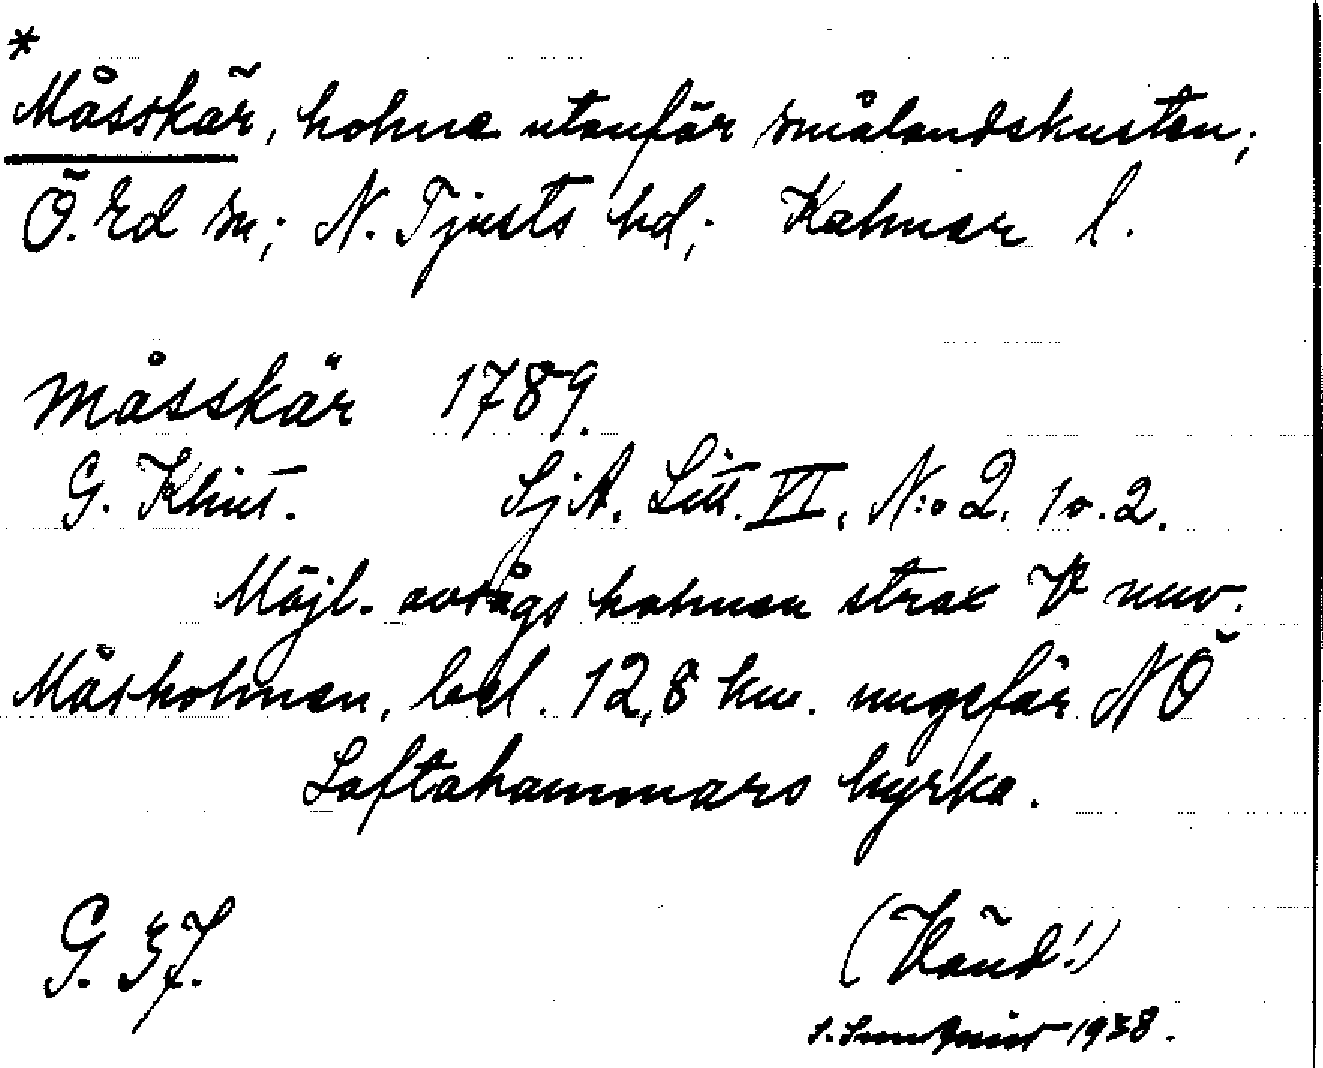 *
Måsskär, holme utanför smålandskusten;
Ö. Ed sn; N. Tjusts hd; Kalmar l.
Måsskär 1789.
G. Klint. SjA. Litt. VI, N:o 2. 10.2.
Möjl. avsågs holmen strax V nuv.
Måsholmen, bel. 12,8 km. ungefär NÖ
Loftahammars kyrka.
G. 37.
(Vänd!)
S. 1938.